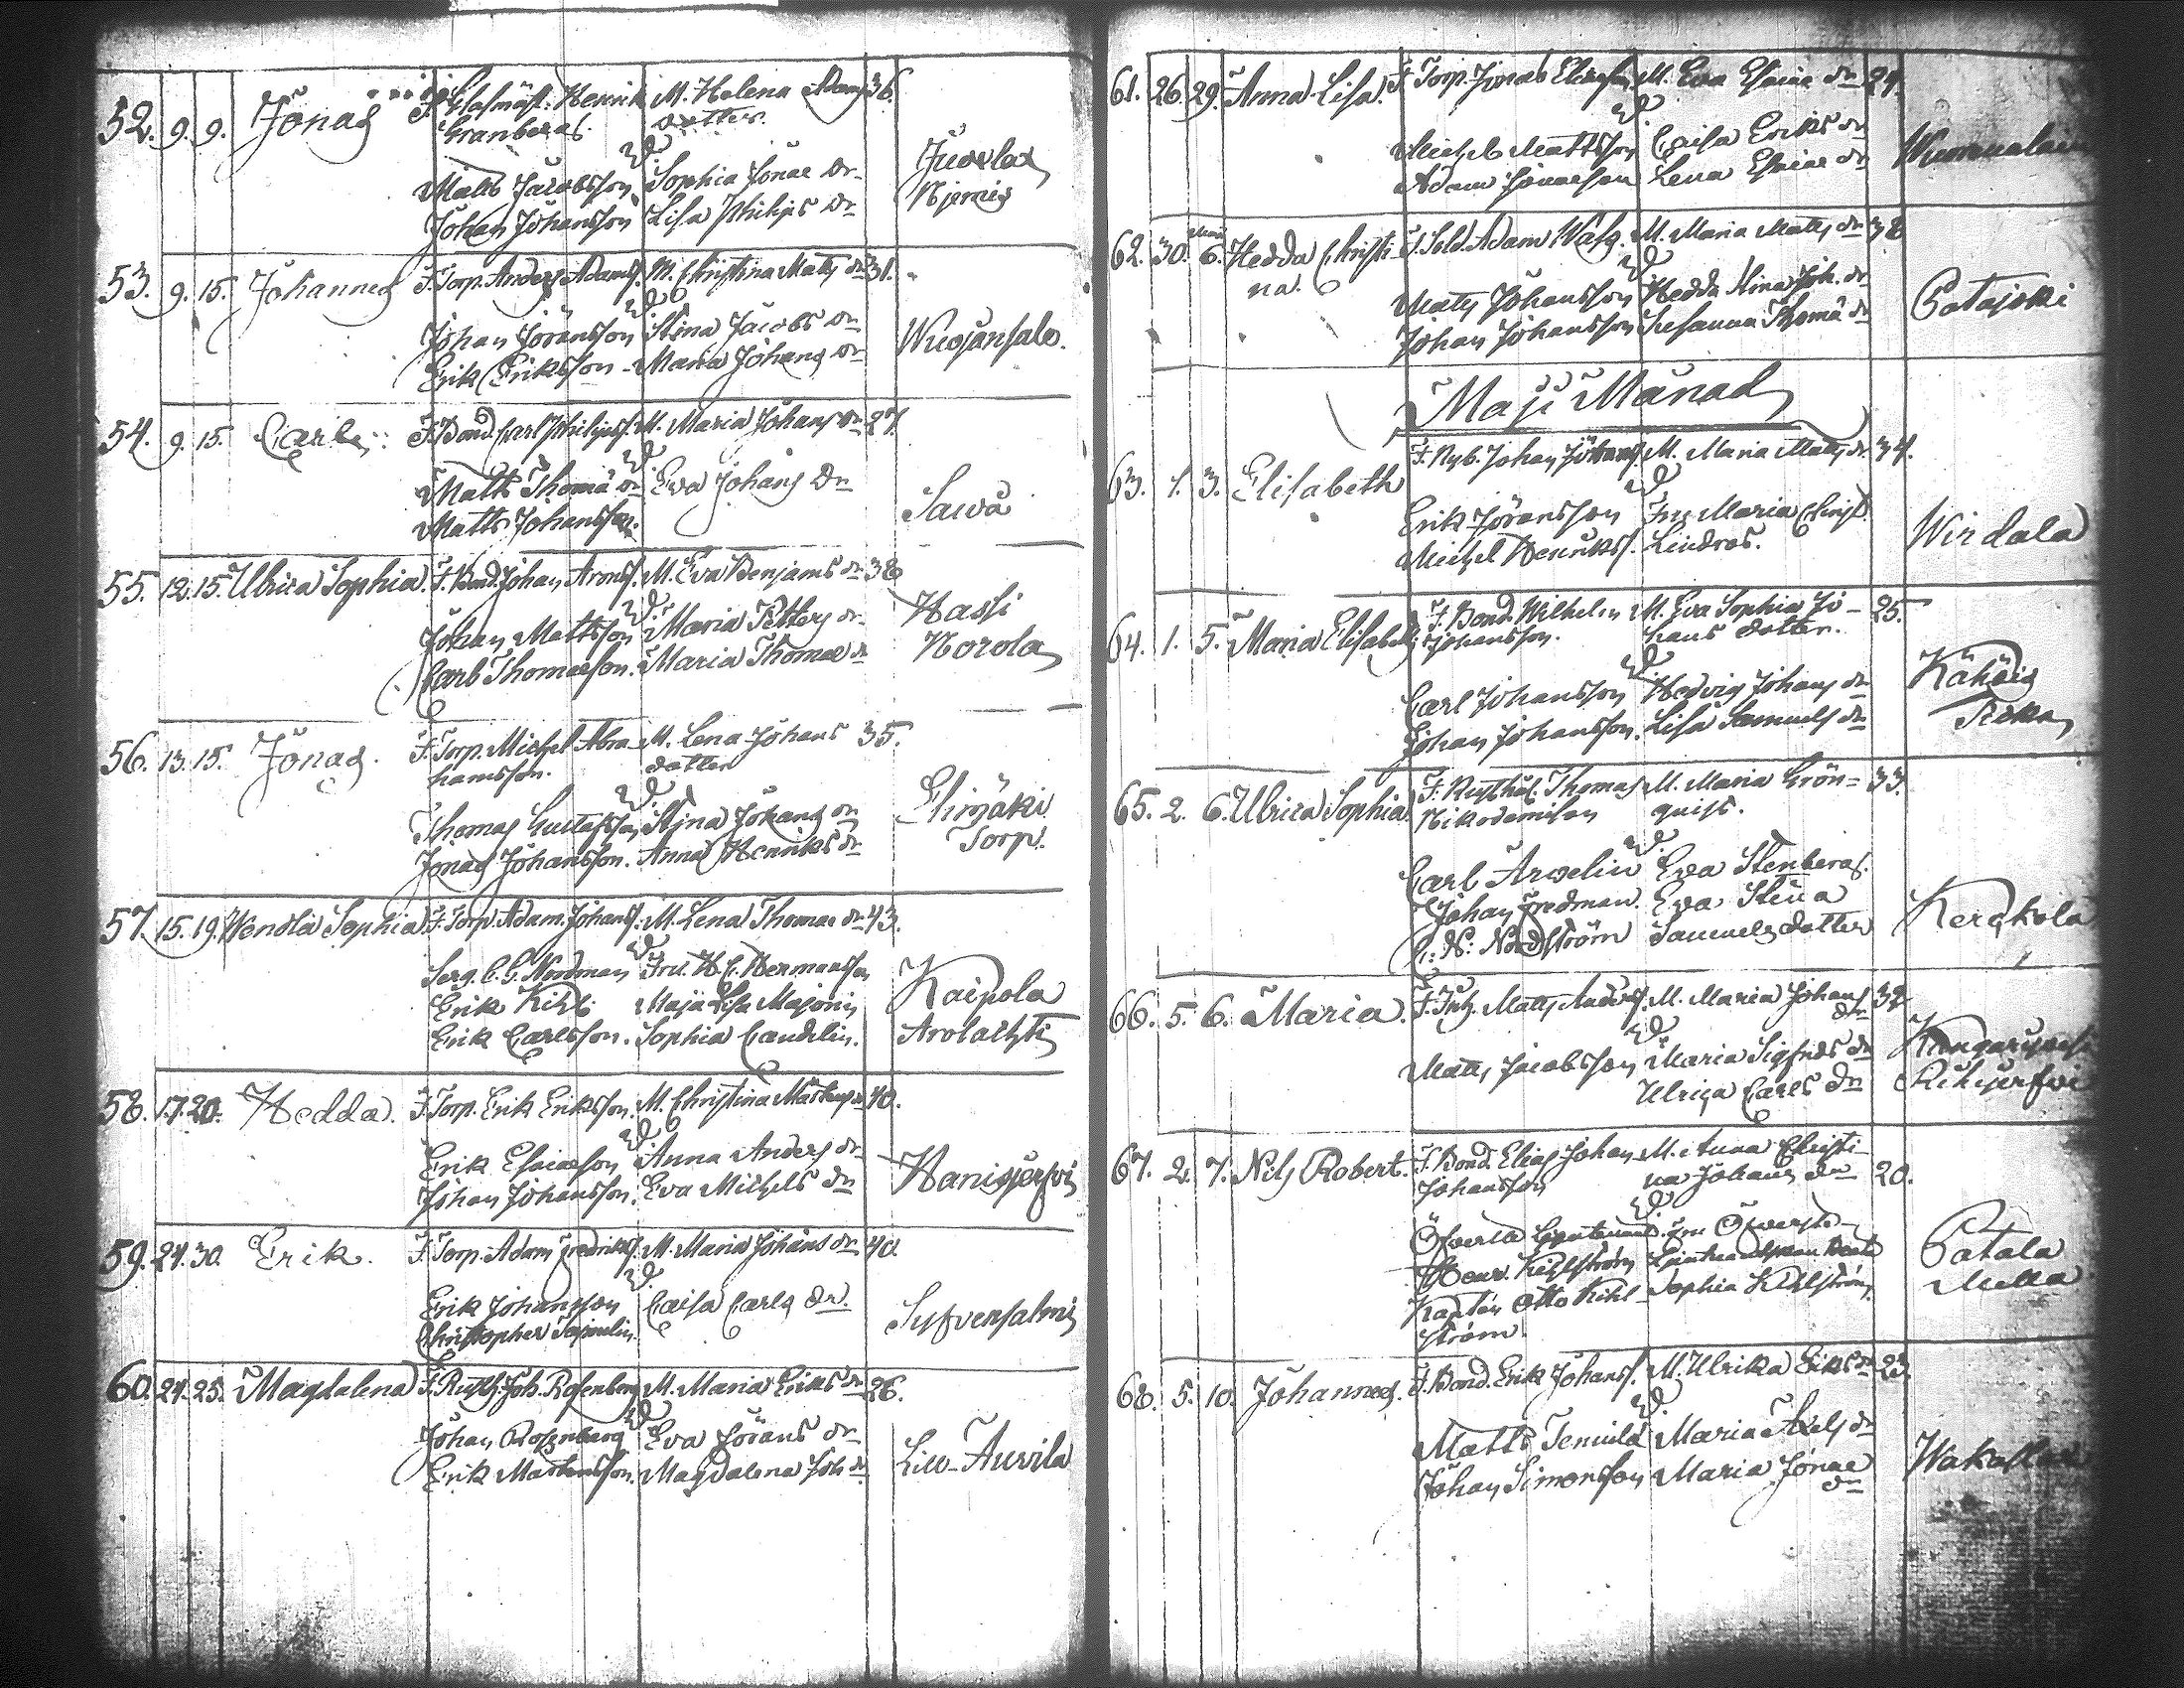 52. 9. 9. Jonas F. Glasmäst. Henrik M. Helena Adams 36.
Granberg. dotter.
Matts Jacobsson Sophia Jonae dr
Johan Johansson Lisa Philips dr
Juvola
Njemis
53. 9. 15. Johannes F. Torp. Anders Adamss. M. Christina Matts dr 31.
Johan Göransson Stina Jacobs dr
Erik Eriksson Maria Johans dr
Wuojansalo.
54. 9. 15. Carl F. Bond. Carl Philipss. M. Maria Johans dr 27.
Matts Thomæ Eva Johans dr
Matts Johansson.
Sawa
55. 12. 15. Ulrica Sophia. F. Bond. Johan Aronss. M. Eva Benjams dr 38
Johan Mattsson Maria Petters dr
Carl Thomasson. Maria Thomae dr
Hasli
Norola
56. 13. 15. Jonas. F. Torp. Michel Abra- M. Lena Johans 35.
hamsson. dotter
Thomas Gustafsson Stina Johans dr
Jonas Johansson. Anna Henriks dr
Elimäki
Torp.
57. 15. 19. Wendla Sophia F. Torp. Adam Johanss. M. Lena Thomae dr 43.
Serg. C. G. Nordman Fru H. C. Hermansson
Erik Kihl Maja Lisa Majonin
Erik Carlsson. Sophia Caudelin.
Kaipola
Arolachti
58. 17. 20. Hedda. F. Torp. Erik Eriksson. M. Christina Mårtens dr 40.
Erik Esaiasson Anna Anders dr
Johan Johansson. Eva Michels dr
Hanisjerfvi
59. 24. 30. Erik. F. Torp. Adam Fredrikss. M. Maria Johans dr 40.
Erik Johansson Caisa Carls dr.
Christopher
Syfvensalmi
60. 24. 25. Magdalena F. Rusth. Joh. Rosenberg M. Maria Eriks dr 26.
Johan Rosenberg Eva Görans dr
Erik Martensson. Magdalena Joh dr
Lill-Auvila
61. 26. 29. Anna Lisa. F. Torp. Jonas M. Eva Esaiae dr 24.
Michel Mattsson Caisa Eriks dr
Adam Jonasson Lena Esaiae dr
62. 30. Maji 6. Hedda Christi- F. Sold. Adam M. Maria Matts dr 38
na.
Matts Johansson Hedda Stina Joh. dr
Johan Johansson Susanna Thomæ dr
Patajoki
Maji Månad
63. 1. 3. Elisabeth F. Nyb. Johan M. Maria Matts dr 34.
Erik Göransson Fru Maria Christ.
Michel Henrikss. Lindros.
Wirdala
64. 1. 5. Maria Elisabeth F. Bond. Wilhelm M. Eva Sophia Jo- 25.
Johansson. hans dotter.
Carl Johansson Hedvig Johans dr
Johan Johansson. Lisa Samuels dr
Kähöis
65. 2. 6. Ulrica Sophia F. Rusthål. Thomas M. Maria Grön- 33.
Nikodemisson quist.
Carl Arvelin Eva Stenberg.
Johan Fredman. Eva Stina
C: N: Nordström Samuels dotter
Kerckola
66. 5. 6. Maria. F. Matts Anderss. M. Maria Johans 32
dr
Matts Jacobsson Maria Sigfrids dr
Ulrica Carls dr
67. 2. 7. Nils Robert. F. Bond. Elias Johan M. Anna Christi-
Johansson na Johans dr 20.
Öfverste Lieutenant. Fru Öfverste-
Henr. Kihlström Lieutenantskan Beata
Kapten Otto Kihl- Sophia Kihlström,
ström.
Patala
Mella
68. 5. 10. Johannes. F. Bond. Erik Johanss. M. Ulrika Eriks dr 23.
Matts Maria Axels dr
Johan Simonsson Maria Jonae
dr